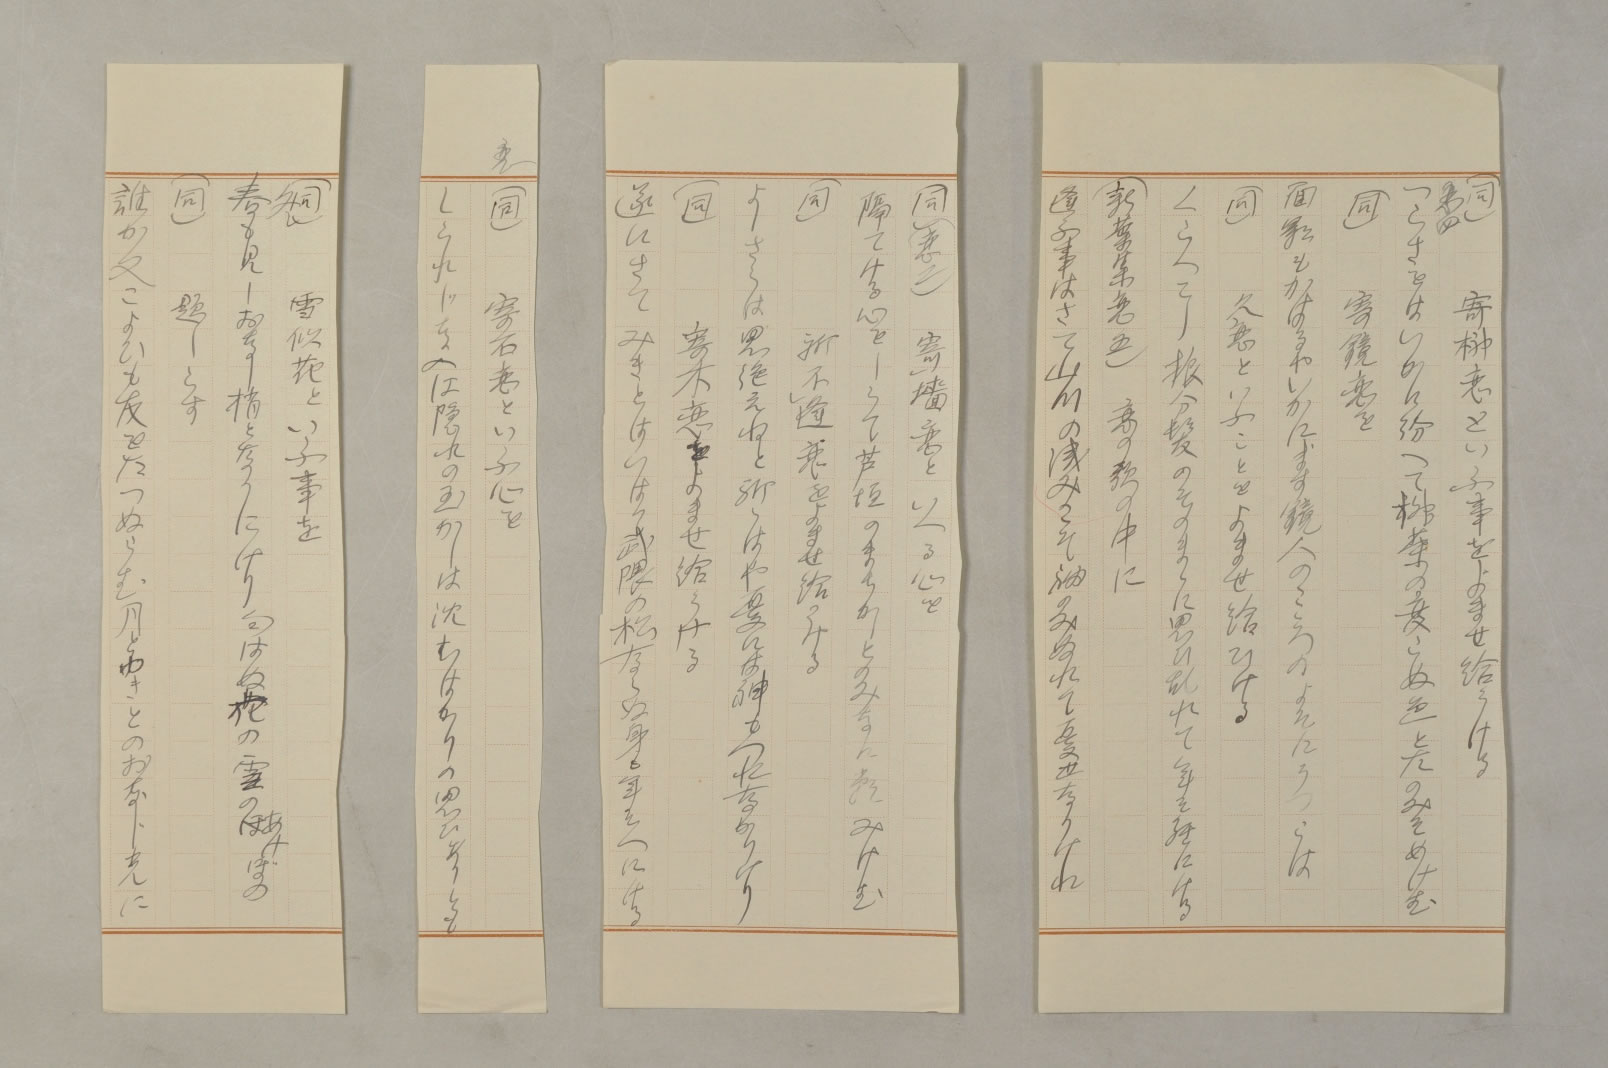 (同) 寄柳恋といふ事をよませ給うける
恋四
つらさをはいかに紛へて柳葉の変らぬ色とたのみそめけむ
(同) 寄鏡恋を
面影もかはるやいかにます鏡人のこゝろのよそにうつらは
(同) 久恋といふことをよませ給ひける
くらへこし振分髪のそのまゝに思ひ乱れて年を経にける
(新葉集恋五) 恋の歌の中に
逢ふ事はさて山川の浅みこそ袖のみぬれて憂世なりけれ
(同)(恋三) 寄墻恋といへる心を
隔てける心をしらて芦垣のまちかしとのみなに頼みけむ
(同) 祈不逢恋をよませ給うける
よしさらは思絶えねと祈らはや憂には神もつれなかりけり
(同) 寄木恋をよませ給うける
遂にさてみきとはいはつ武隈の松ならぬ身も年をへにける
恋一
(同) 寄石恋といふ心を
しられしな入江隠れの玉かしは沈むはかりの思ひありとも
(同) 雪似花といふ事を
冬
春も見しおなし梢となりにけり匂はぬ花の雪のあけぼの
(同) 題しらす
誰か又こよひも友をたつぬらむ月とゆきとのおなし光に